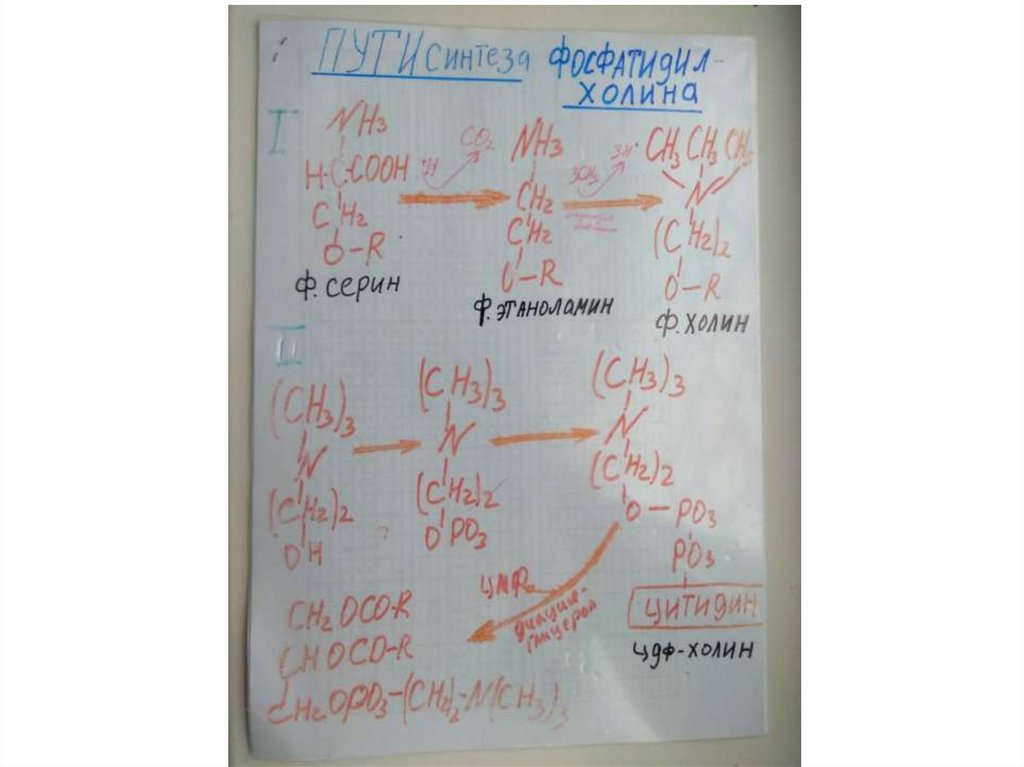 ПУТИ синтеза ФОСФАТИДИЛ-
ХОЛИНА
I
NH3
H-C-COOH
CH2
O-R
Ф. СЕРИН
+H
CO2
NH3
CH2
CH2
O-R
Ф. ЭТАНОЛАМИН
3CH3
3H+
CH3 CH3 CH3
N
(CH2)2
O-R
Ф. ХОЛИН
II
(CH3)3
N
(CH2)2
OH
(CH3)3
N
(CH2)2
OPO3
(CH3)3
N
(CH2)2
O — PO3
PO3
ЦИТИДИН
ЦДФ-ХОЛИН
ЦМФ
диацил-
глицерол
CH2 OCO-R
CHOCO-R
CH2OPO3-(CH2)2-N(CH3)3